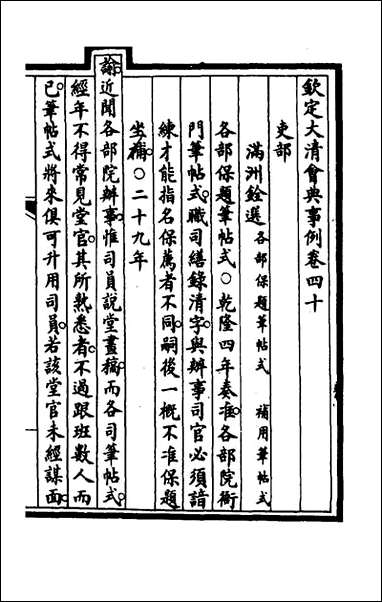 欽定大清會典事例卷四十
吏部
滿洲銓選 各部保題筆帖式 補用筆帖式
各部保題筆帖式○乾隆四年奏准。各部院衙
門筆帖式。職司繕錄清字。與辦事司官必須諳
練才能指名保薦者不同。嗣後一概不准保題
坐補。○二十九年
諭。近聞各部院辦事。惟司員說堂畫稿。而各司筆帖式。
經年不得常見堂官。其所熟悉者。不過跟班數人而
已。筆帖式將來俱可升用司員。若該堂官未經謀面。